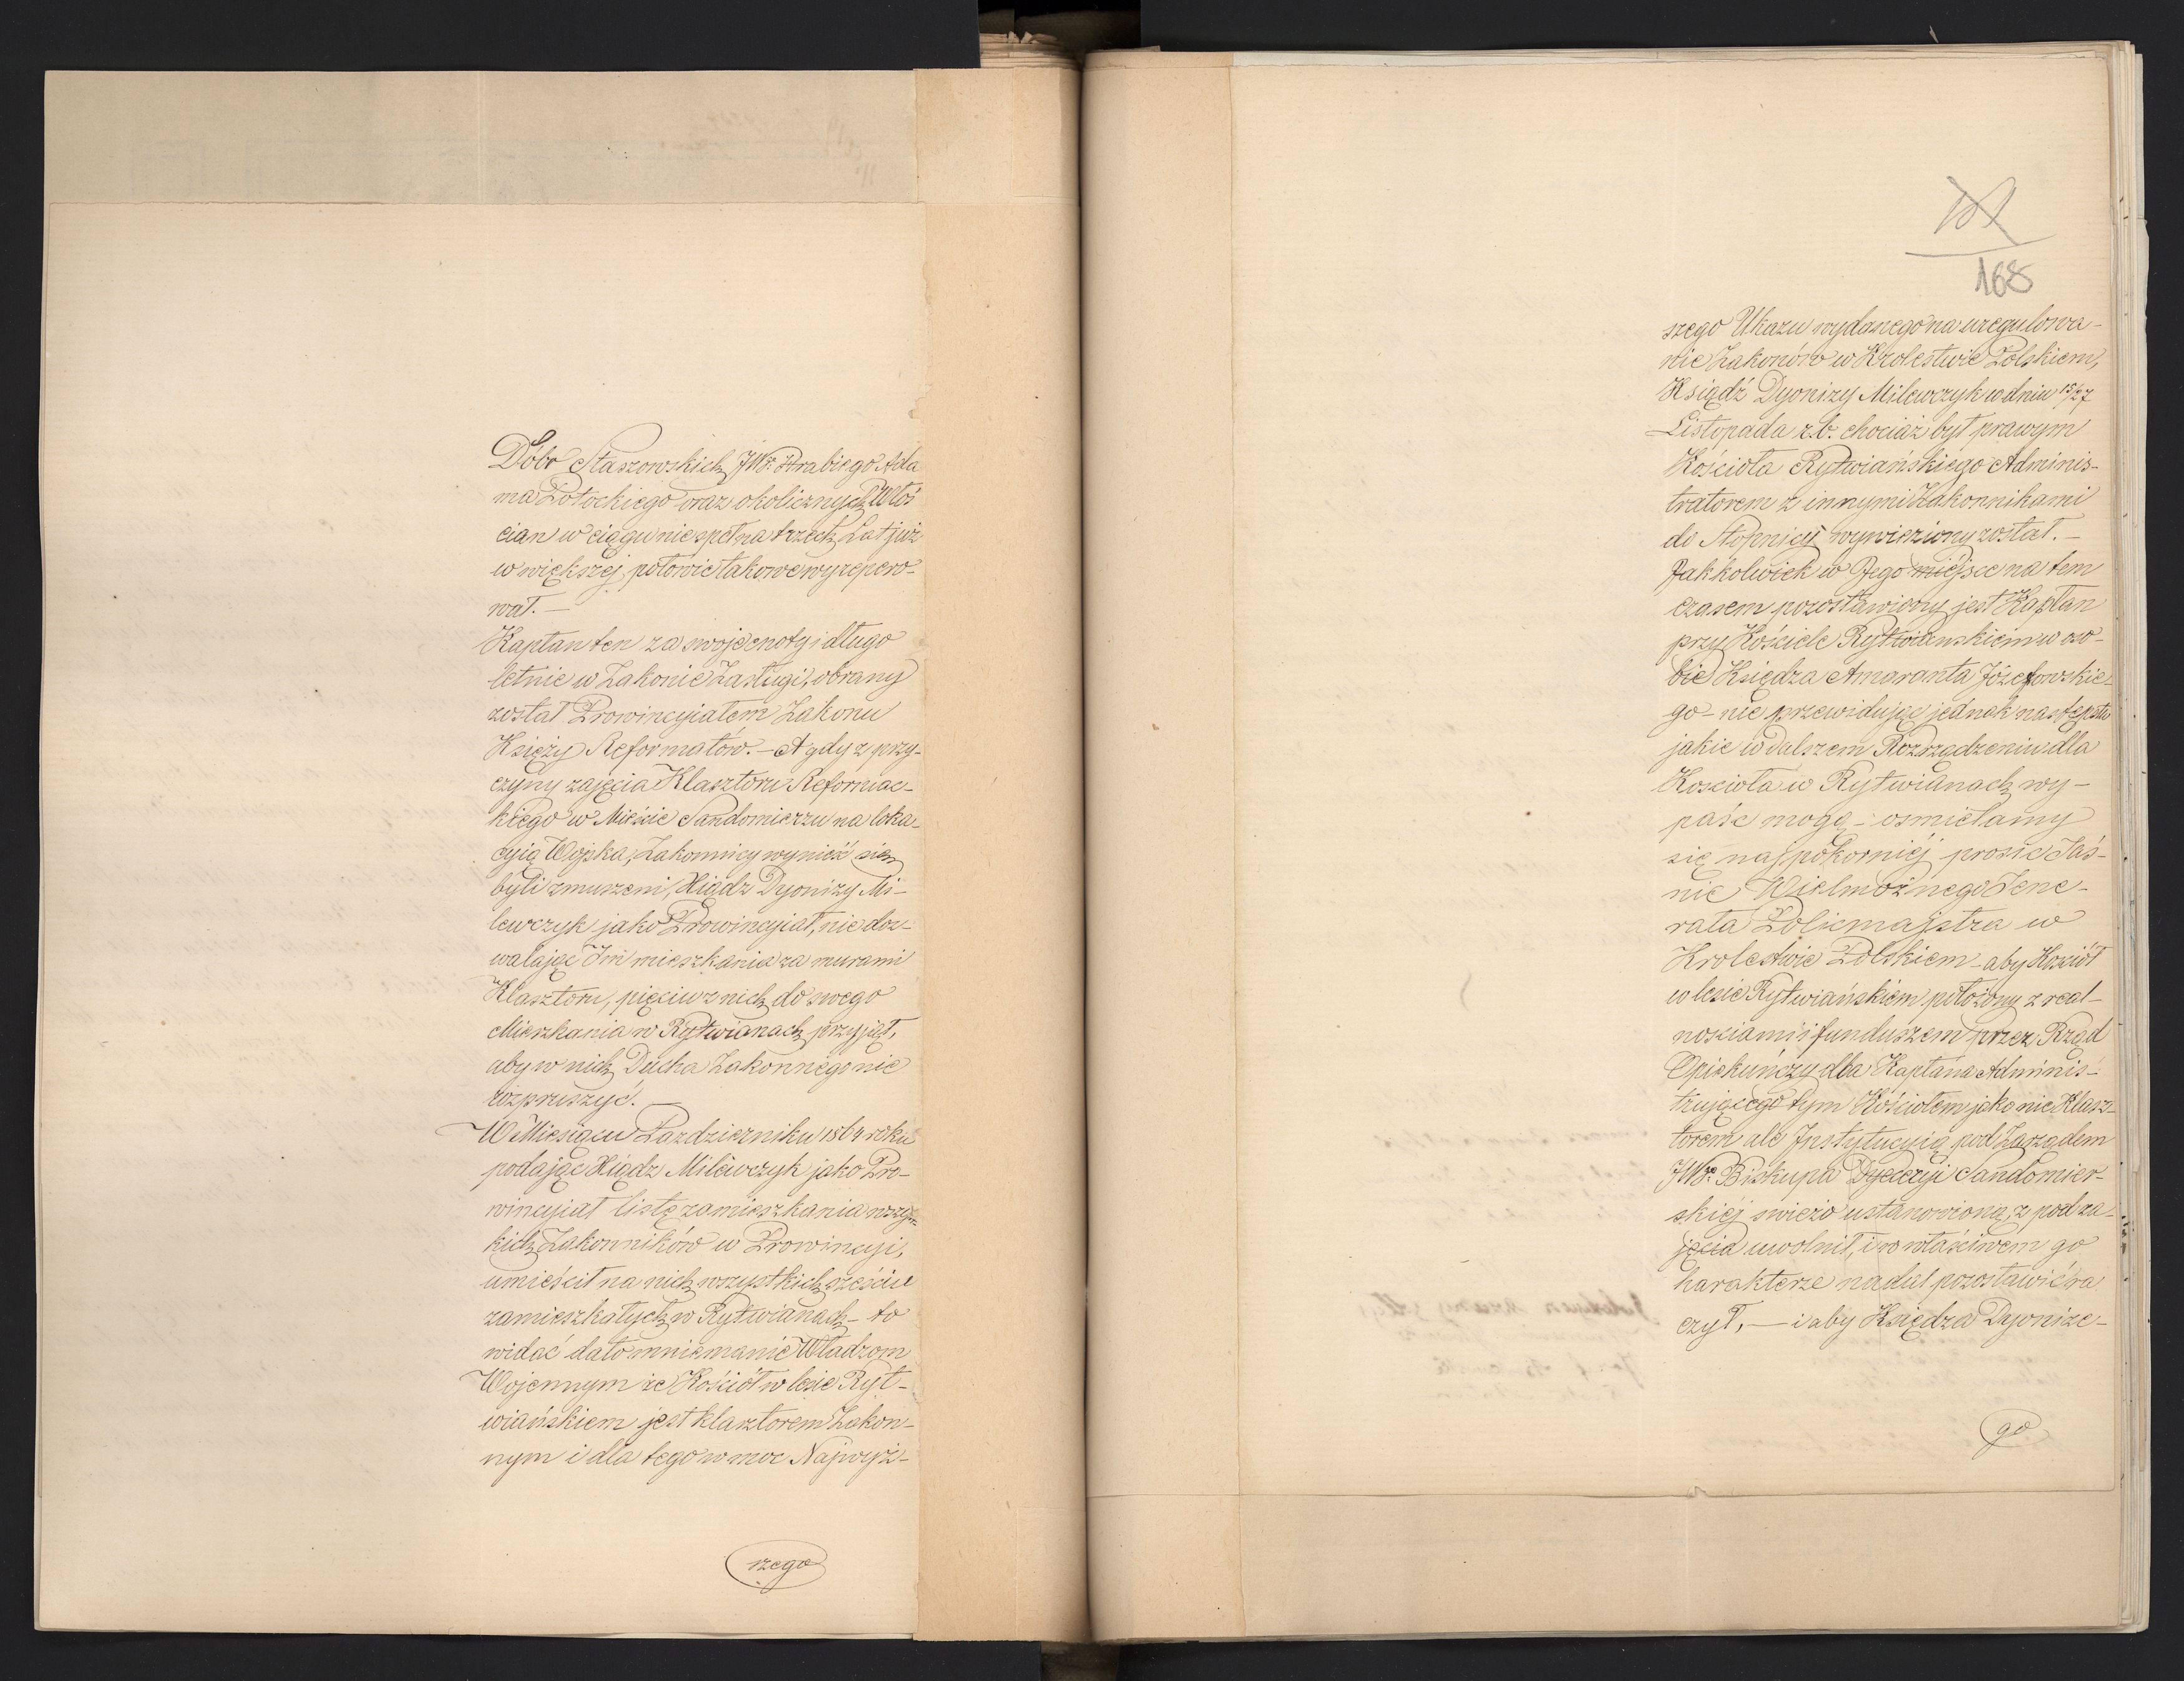 Dobr Staszowskich JWgo Hrabiego Ada
ma Potockiego oraz okolicznych Włoś
cian w ciągu niespełna trzech Lat już
w większej połowie takowe wyrepero-
wał. —
Kapłan ten za swoje cnoty i długo
letnie w Zakonie Zasługi, obrany
został Prowincyiałem Zakonu
Księży Reformatów. – A gdy z przy-
czyny zajęcia Klasztoru Reformac-
kiego w Mieście Sandomierzu na loka-
cyią Wojska, Zakonnicy wynieść się
byli zmuszeni, Xiądz Dyonizy Mi-
lewczyk jako Prowincyiał, nie doz-
walając Im mieszkania za murami
Klasztoru, pięciu z nich do swego
Mieszkania w Rytwianach przyjął,
aby w nich Ducha Zakonnego nie
rozpruszyć. —
W Miesiącu Pazdzierniku 1864 roku
podając Xiądz Milewczyk jako Pro-
wincyiał listę zamieszkania wszyst
kich Zakonników w Prowincyi,
umieścił na nich wszystkich sześciu
zamieszkałych w Rytwianach – to
widać dało mniemanie Władzom
Wojennym że Kościół w lesie Ryt-
wiańskiem jest klasztorem Zakon-
nym i dla tego w moc Najwyż-
szego
168
szego Ukazu wydanego na uregulowa-
nie Zakonów w Krolestwie Polskiem,
Ksiądź Dyonizy Milewczyk w dniu 15/27
Listopada r.b. chociaż był prawym
Kościoła Rytwiańskiego Adminis-
tratorem z innymi Zakonnikami
do Stopnicy wywieziony został. –
Jakkolwiek w Jego miejsce na tem
czasem pozostawiony jest Kapłan
przy Kościele Rytwianskiem w oso-
bie Księdza Amaranta Józefowskie-
go – nie przewidując jednak następstw
jakie w dalszem Rozrządzeniu dla
Koscioła w Rytwianach wy-
paść mogą – osmielamy
się najpokorniéj prosić Jaś-
nie Wielmożnego Jene-
rała Policmajstra w
Krolestwie Polskiem – aby Kościół
w lesie Rytwiańskiem położony z real-
nościami i funduszem przez Rząd
Opiekuńczy dla Kapłana Adminis-
trującego tym Kościołem jako nie Klasz-
torem ale Instytucyią pod Zarządem
JWgo Biskupa Dyecezyi Sandomier-
skiéj swieżo ustanowioną, z pod za-
jęcia uwolnił, i w właściwem go
harakterze nadal pozostawić ra
czył, — i aby Księdza Dyonize-
go